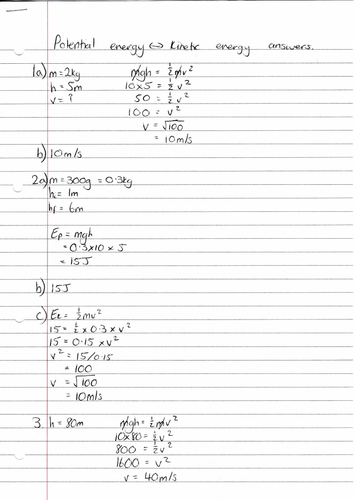 Potential energy ↔ Kinetic energy answers.
1a) m = 2kg m̸gh = ½m̸v²
h = 5m 10×5 = ½v²
v = ? 50 = ½v²
100 = v²
v = √100
= 10m/s
b) 10m/s
2a) m = 300g = 0.3kg
hᵢ = 1m
hf = 6m
Ep = mgh
= 0.3×10 × 5
= 15J
b) 15J
c) Ek = ½mv²
15 = ½ × 0.3 × v²
15 = 0.15 × v²
v² = 15/0.15
= 100
v = √100
= 10m/s
3. h = 80m m̸gh = ½m̸v²
10×80 = ½v²
800 = ½v²
1600 = v²
v = 40m/s